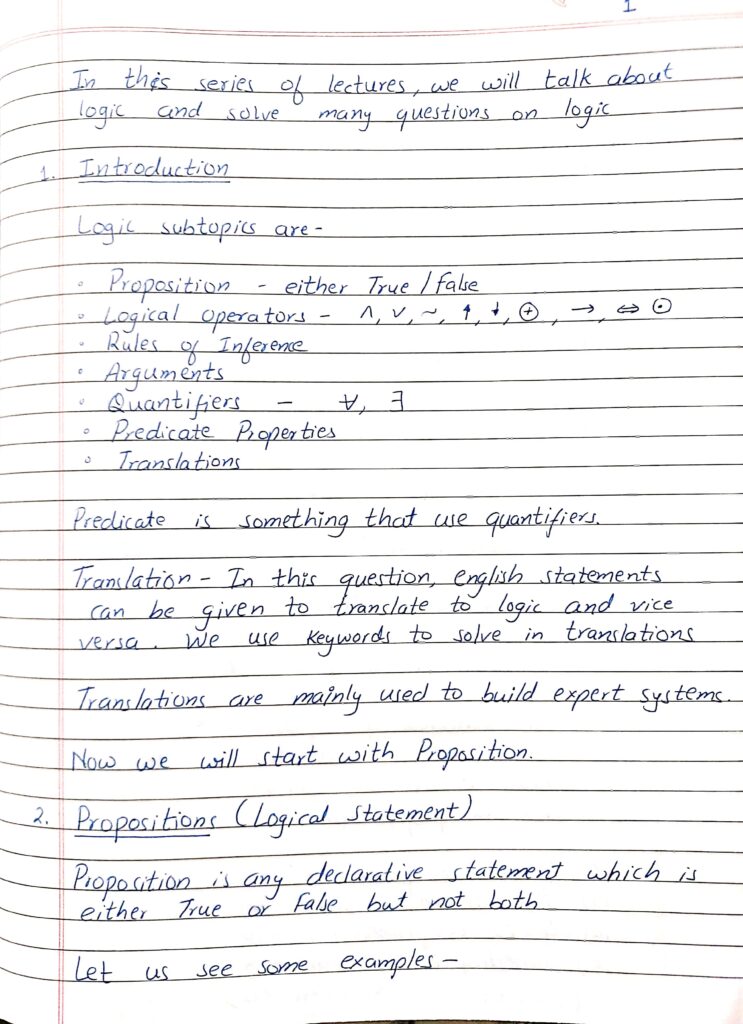 1
In this series of lectures, we will talk about
logic and solve many questions on logic
1. Introduction
Logic subtopics are -
◦ Proposition - either True / false
◦ Logical Operators - ∧, ∨, ~, ↑, ↓, ⊕, →, ⇔ ⊙
◦ Rules of Inference
◦ Arguments
◦ Quantifiers - ∀, ∃
◦ Predicate Properties
◦ Translations
Predicate is something that use quantifiers.
Translation - In this question, english statements
can be given to translate to logic and vice
versa. We use keywords to solve in translations
Translations are mainly used to build expert systems.
Now we will start with Proposition.
2. Propositions (Logical Statement)
Proposition is any declarative statement which is
either True or False but not both
Let us see some examples -